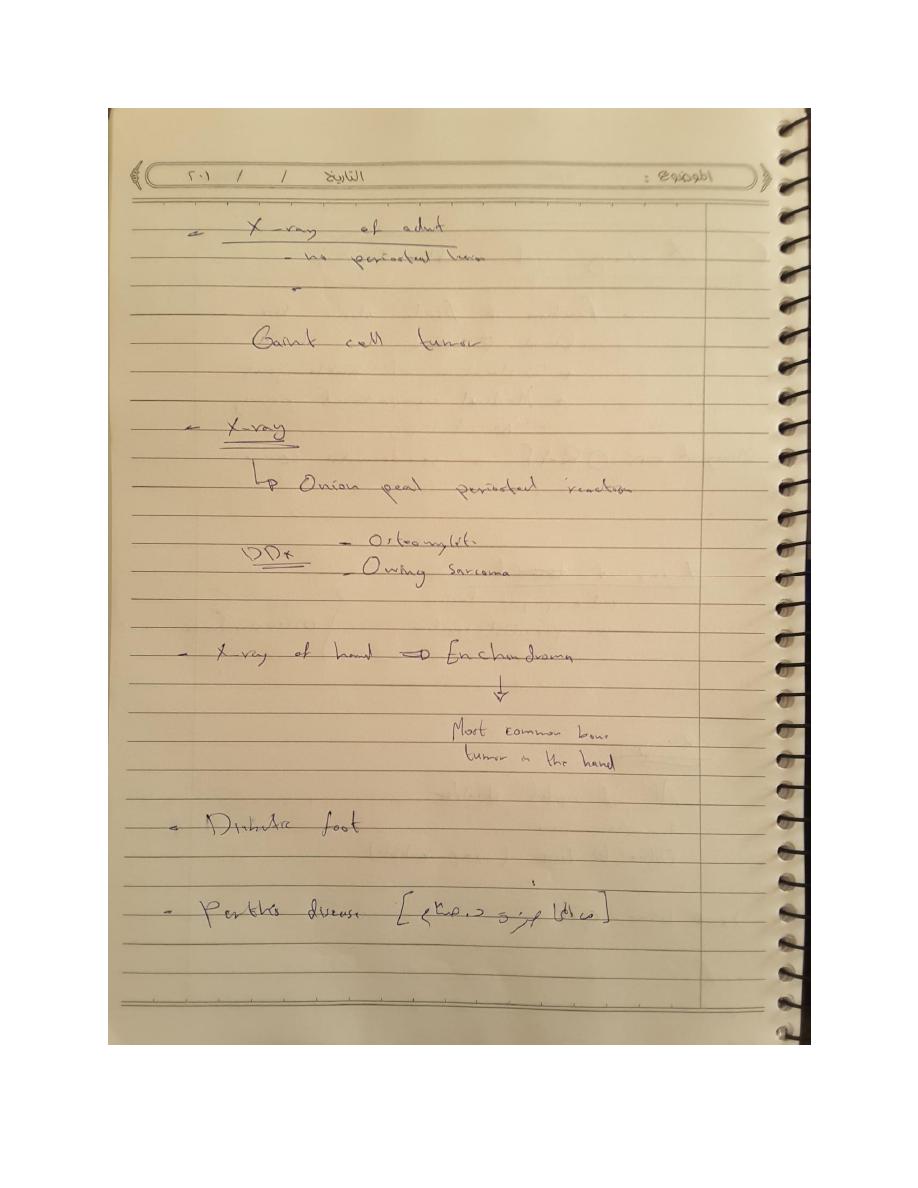 الموضوع :
التاريخ / / ٢٠١
- X-ray of adult
- no periosteal
-
Gaint cell tumor
- X-ray
↳ Onion peal periosteal reaction
DDx - Osteomyelitis
- Owing sarcoma
- X-ray of hand ⇒ Enchondroma
↓
Most common bone
tumor in the hand
- Diabetic foot
- Perthis disease [ د. ]